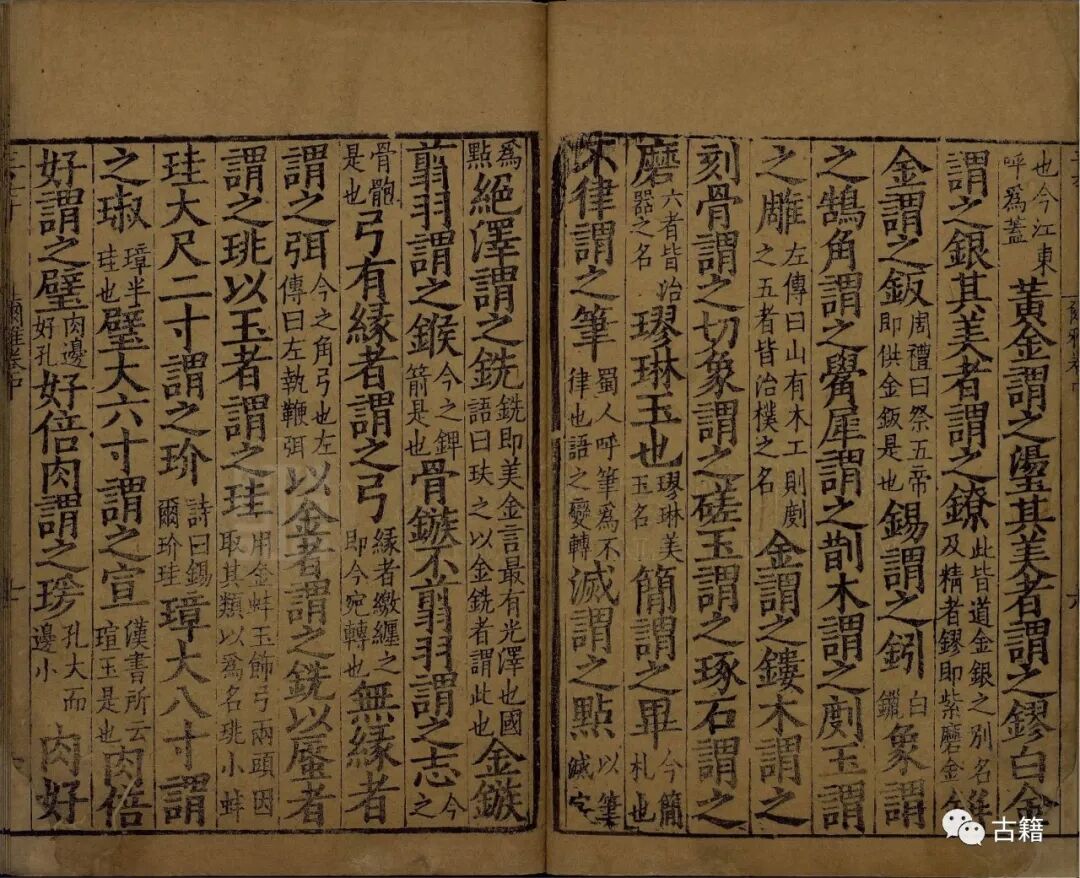 也今江東呼爲蓋黃金謂之璗其美者謂之鏐白金
謂之銀其美者謂之鐐此皆道金銀之別名及精者鏐即紫磨金鉼
金謂之鈑周禮曰祭五帝即供金鈑是也錫謂之鈏白鑞象謂
之鵠角謂之觷犀謂之剒木謂之剫玉謂
之雕左傳曰山有木工則剫之五者皆治樸之名金謂之鏤木謂之
刻骨謂之切象謂之磋玉謂之琢石謂之
磨六者皆治器之名璆琳玉也璆琳美玉名簡謂之畢今簡札也
不律謂之筆蜀人呼筆爲不律也語之變轉滅謂之點以筆滅字
爲點絕澤謂之銑銑即美金言最有光澤也國語曰玦之以金銑者謂此也金鏃
翦羽謂之鍭今之錍箭是也骨鏃不翦羽謂之志今之
骨骲是也弓有緣者謂之弓緣者繳纏之即今宛轉也無緣者
謂之弭今之角弓也左傳曰左執鞭弭以金者謂之銑以蜃者
謂之珧以玉者謂之珪用金蚌玉飾弓兩頭因取其類以爲名珧小蚌
珪大尺二寸謂之玠詩曰錫爾玠珪璋大八寸謂
之琡璋半珪也璧大六寸謂之宣漢書所云瑄玉是也肉倍
好謂之璧肉邊好孔好倍肉謂之瑗孔大而邊小肉好
爾雅卷中
古籍